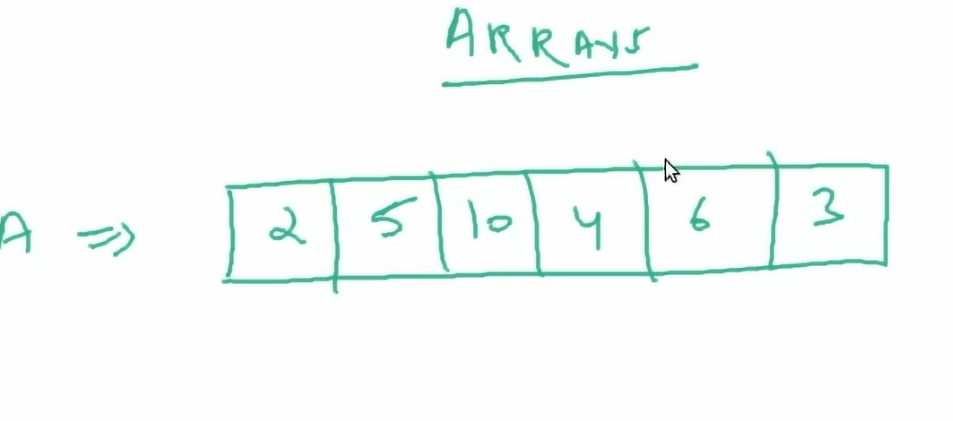 ARRAYS
A ⇒ 2 5 10 4 6 3